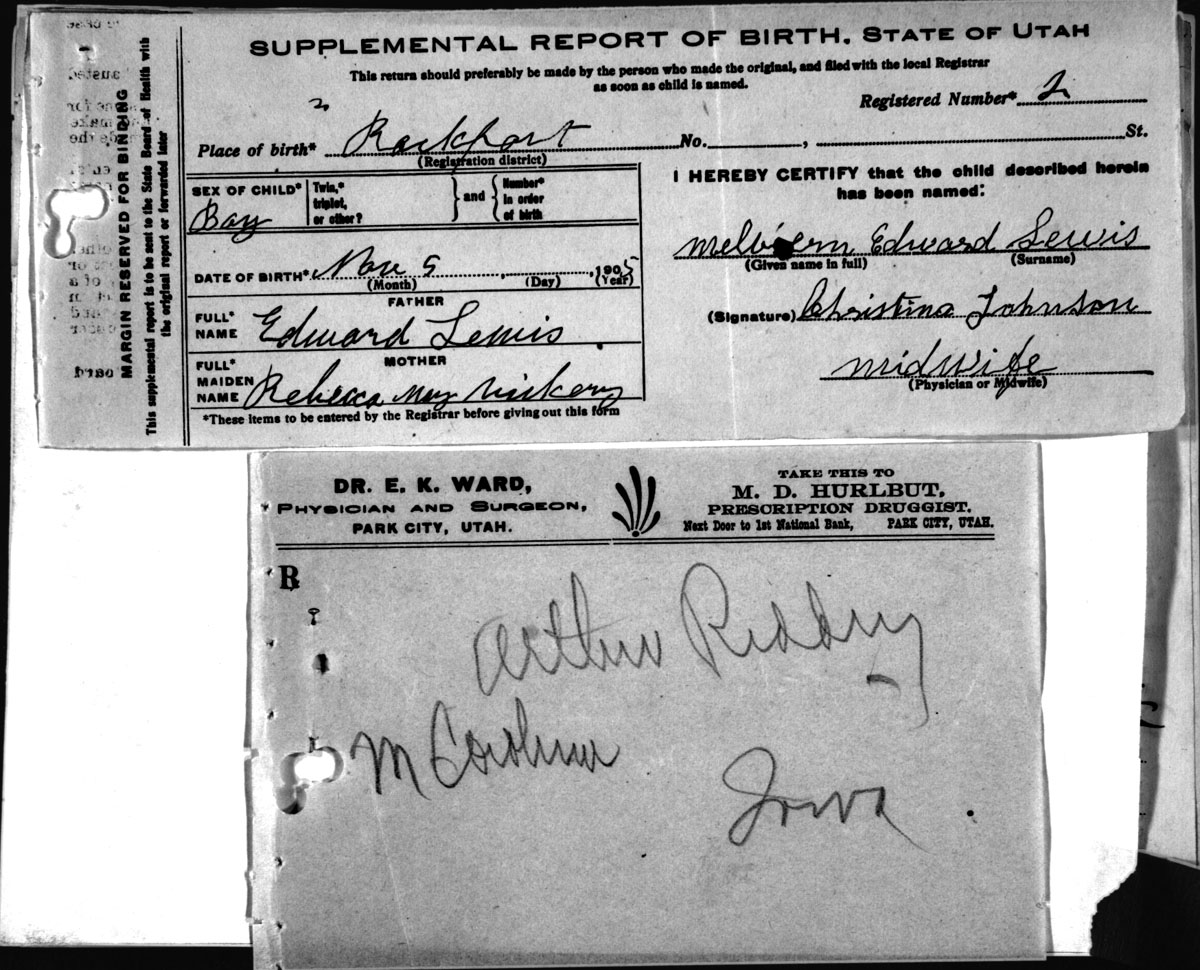 SUPPLEMENTAL REPORT OF BIRTH. STATE OF UTAH
This return should preferably be made by the person who made the original, and filed with the local Registrar
as soon as child is named.
Registered Number* 2
Place of birth* Rockport No. , St.
(Registration district)
MARGIN RESERVED FOR BINDING
This supplemental report is to be sent to the State Board of Health with
the original report or forwarded later
SEX OF CHILD* Twin,* triplet, or other? } and { Number* in order of birth
Boy
DATE OF BIRTH* Nov 5, 1905
(Month) (Day) (Year)
FATHER
FULL* NAME Edward Lewis
MOTHER
FULL* MAIDEN NAME Rebecca May Vickery
*These items to be entered by the Registrar before giving out this form
I HEREBY CERTIFY that the child described herein
has been named:
Edward Lewis
(Given name in full) (Surname)
(Signature) Christina Johnson
midwife
(Physician or Midwife)
DR. E. K. WARD,
PHYSICIAN AND SURGEON,
PARK CITY, UTAH.
TAKE THIS TO
M. D. HURLBUT,
PRESCRIPTION DRUGGIST.
Next Door to 1st National Bank, PARK CITY, UTAH.
R
Arthur
M
Iowa